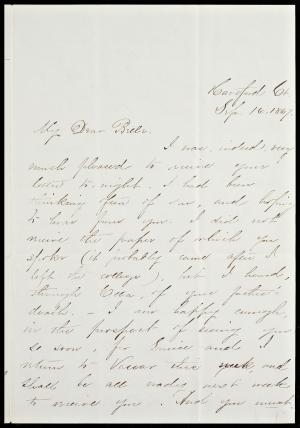 Hartford Ct.
Sep. 16. 1867.
My Dear
I was, indeed, very
much pleased to receive your
letter to-night. I had been
thinking of and hoping
to hear from you. I did not
receive the paper of which you
spoke (it probably came after I
left the college), but I heard,
through of your father's
death. – I am happy enough,
in the prospect of seeing you
so soon, for and I
return to Vassar this week and
shall be all ready next week
to receive you. And you must